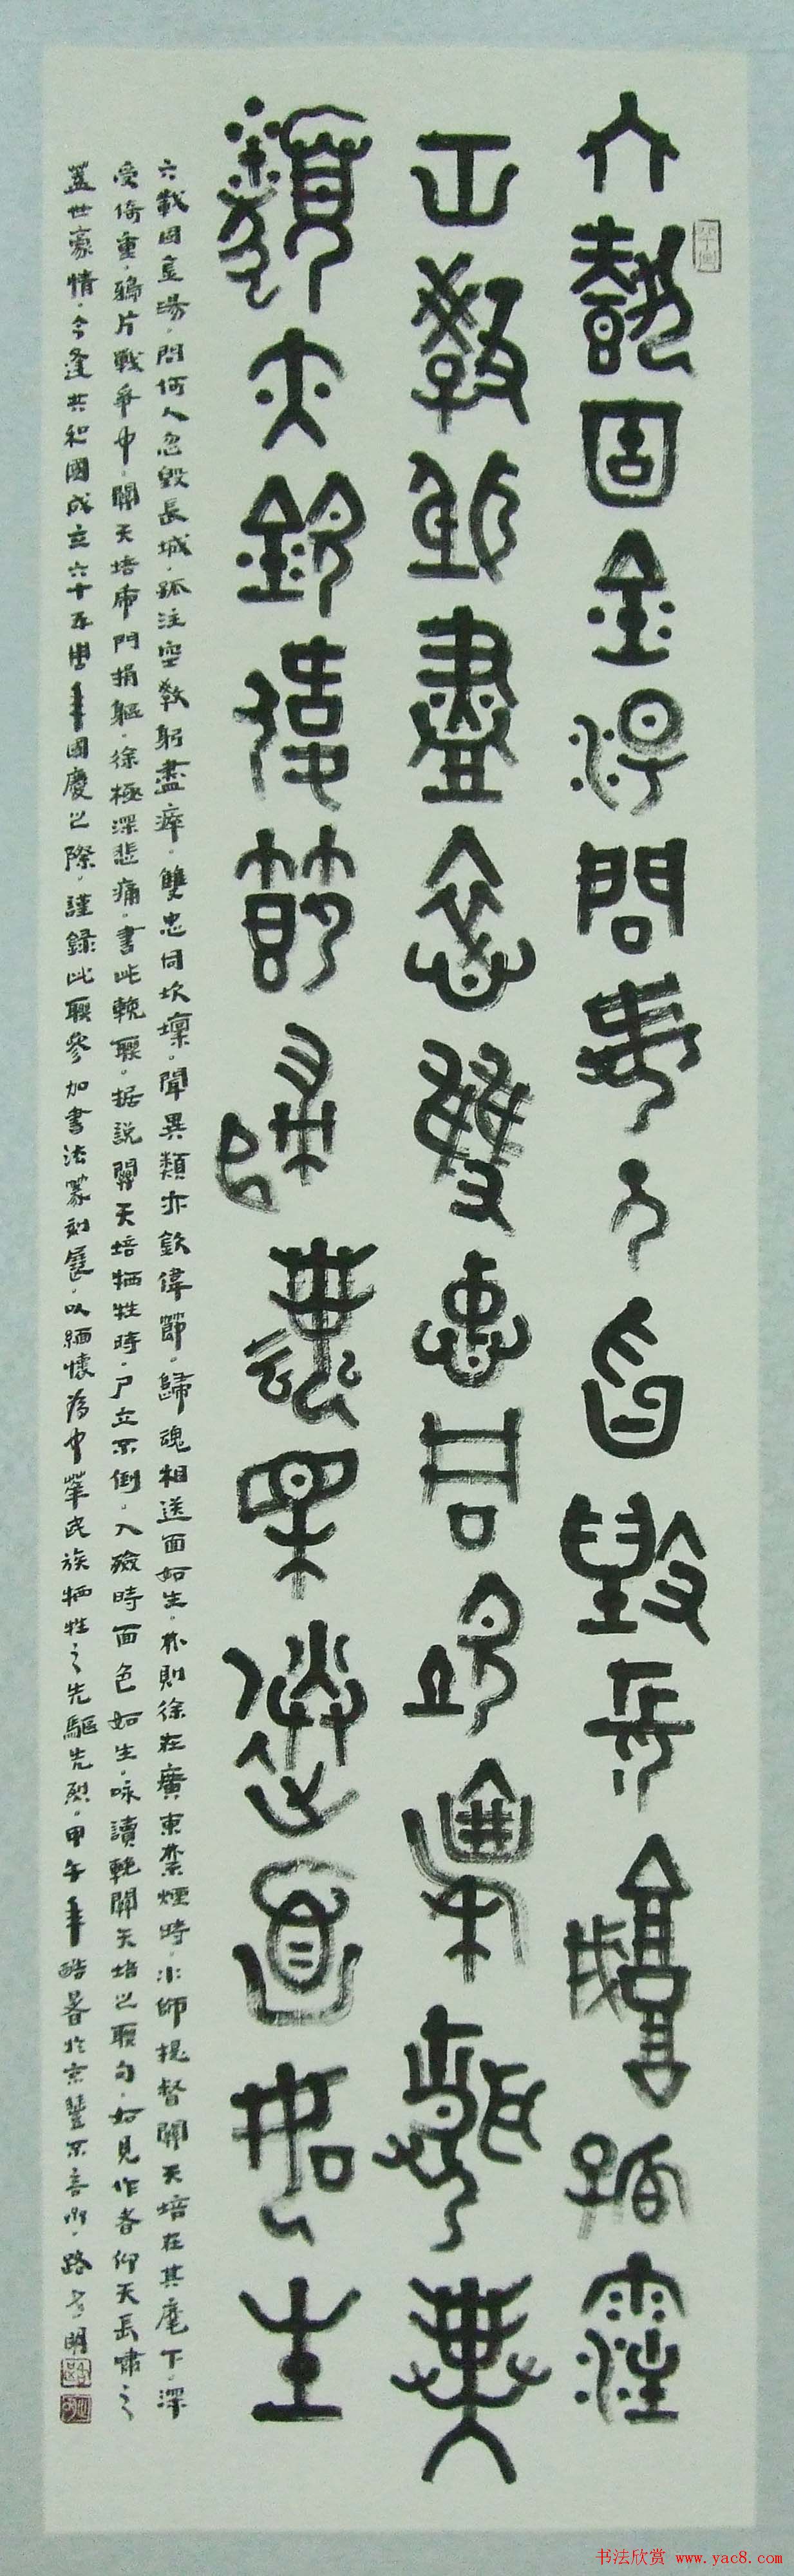 六載固金湯問何人忽毀長城孤注
空教躬盡瘁雙忠同坎壈聞異
類亦欽偉節歸魂相送面如生
六載固金湯，問何人忽毀長城，孤注空教躬盡瘁，雙忠同坎壈，聞異類亦欽偉節，歸魂相送面如生。林則徐在廣東禁煙時，水師提督關天培在其麾下，深
受倚重，鴉片戰爭中，關天培虎門捐軀，徐極深悲痛，書此輓聯，据說關天培牺牲時，尸立不倒，入殮時面色如生，咏讀輓關天培之聯句，如見作者仰天長嘯之
蓋世豪情，今逢共和國成立六十五周年國慶之際，謹錄此聯參加書法篆刻展，以緬懷為中華民族牺牲之先驅先烈，甲午年酷暑於京豐不言
书法欣赏 www.yac8.com